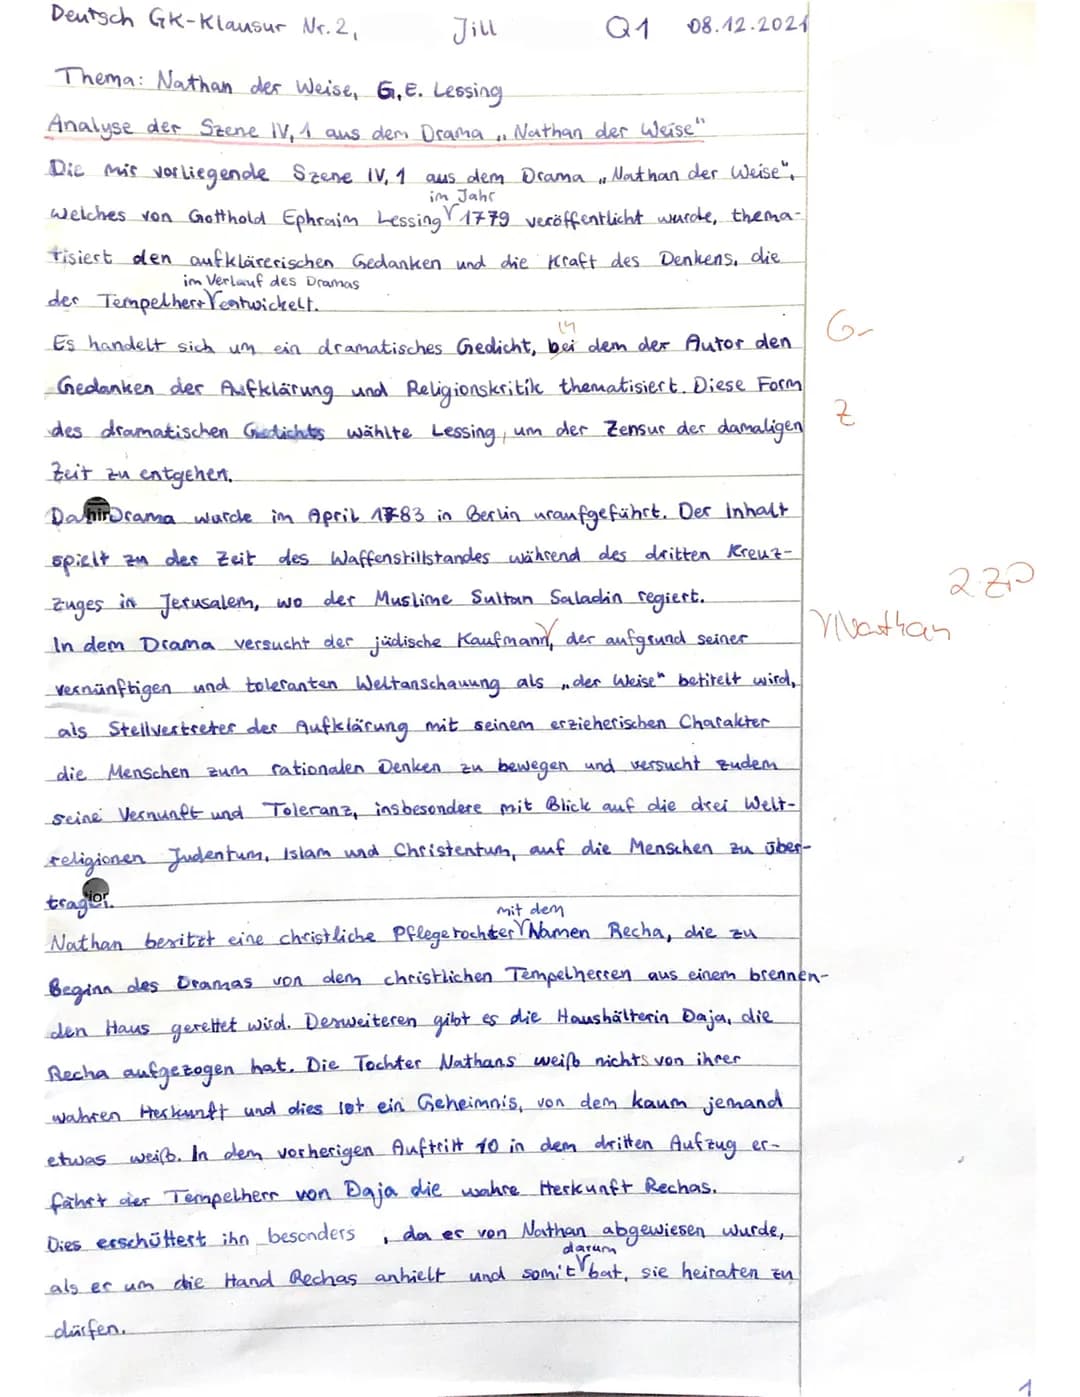 Deutsch GK-Klausur Nr. 2, Jill Q1 08.12.2021
Thema: Nathan der Weise, G.E. Lessing
Analyse der Szene IV, 1 aus dem Drama „Nathan der Weise"
Die mir vorliegende Szene IV, 1 aus dem Drama „Nathan der Weise",
im Jahr
welches von Gotthold Ephraim Lessing 1779 veröffentlicht wurde, thema-
tisiert den aufklärerischen Gedanken und die Kraft des Denkens, die
im Verlauf des Dramas
der Tempelherr entwickelt.
in
Es handelt sich um ein dramatisches Gedicht, bei dem der Autor den G-
Gedanken der Aufklärung und Religionskritik thematisiert. Diese Form
des dramatischen Gedichts wählte Lessing, um der Zensur der damaligen Z
Zeit zu entgehen.
Drama wurde im April 1783 in Berlin uraufgeführt. Der Inhalt
spielt zu der Zeit des Waffenstillstandes während des dritten Kreuz-
zuges in Jerusalem, wo der Muslime Sultan Saladin regiert.
In dem Drama versucht der jüdische Kaufmann, der aufgrund seiner Nathan
vernünftigen und toleranten Weltanschauung als „der Weise" betitelt wird,
als Stellvertreter der Aufklärung mit seinem erzieherischen Charakter
die Menschen zum rationalen Denken zu bewegen und versucht zudem
seine Vernunft und Toleranz, insbesondere mit Blick auf die drei Welt-
religionen Judentum, Islam und Christentum, auf die Menschen zu über-
mit dem
Nathan besitzt eine christliche Pflegetochter Namen Recha, die zu
Beginn des Dramas von dem christlichen Tempelherren aus einem brennen-
den Haus gerettet wird. Desweiteren gibt es die Haushälterin Daja, die
Recha aufgezogen hat. Die Tochter Nathans weiß nichts von ihrer
wahren Herkunft und dies ist ein Geheimnis, von dem kaum jemand
etwas weiß. In dem vorherigen Auftritt 10 in dem dritten Aufzug er-
fährt der Tempelherr von Daja die wahre Herkunft Rechas.
Dies erschüttert ihn besonders , da er von Nathan abgewiesen wurde,
darum
als er um die Hand Rechas anhielt und somit bat, sie heiraten zu
dürfen.
1